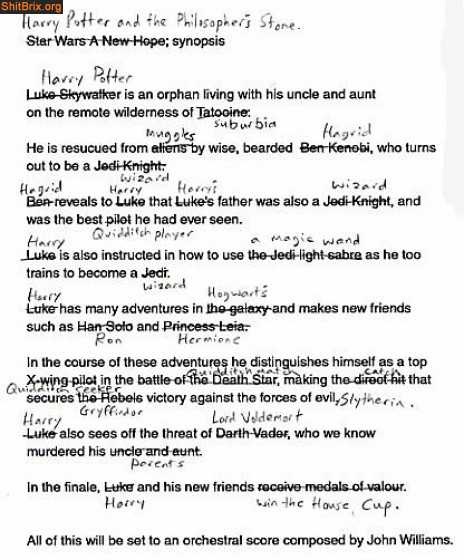 ShitBrix.org
Harry Potter and the Philosopher's Stone.
Star Wars A New Hope; synopsis
Harry Potter
Luke Skywalker is an orphan living with his uncle and aunt
on the remote wilderness of Tatooine.
suburbia
muggles Hagrid
He is resucued from aliens by wise, bearded Ben Kenobi, who turns
out to be a Jedi Knight.
wizard
Hagrid Harry Harry's wizard
Ben reveals to Luke that Luke's father was also a Jedi Knight, and
was the best pilot he had ever seen.
Quidditch player
Harry a magic wand
Luke is also instructed in how to use the Jedi light sabre as he too
trains to become a Jedi.
wizard
Harry Hogwarts
Luke has many adventures in the galaxy and makes new friends
such as Han Solo and Princess Leia.
Ron Hermione
In the course of these adventures he distinguishes himself as a top
Quidditch match catch
X-wing pilot in the battle of the Death Star, making the direct hit that
Quidditch seeker
secures the Rebels victory against the forces of evil, Slytherin.
Gryffindor
Harry Lord Voldemort
Luke also sees off the threat of Darth Vader, who we know
murdered his uncle and aunt.
parents
In the finale, Luke and his new friends receive medals of valour.
Harry win the House Cup.
All of this will be set to an orchestral score composed by John Williams.